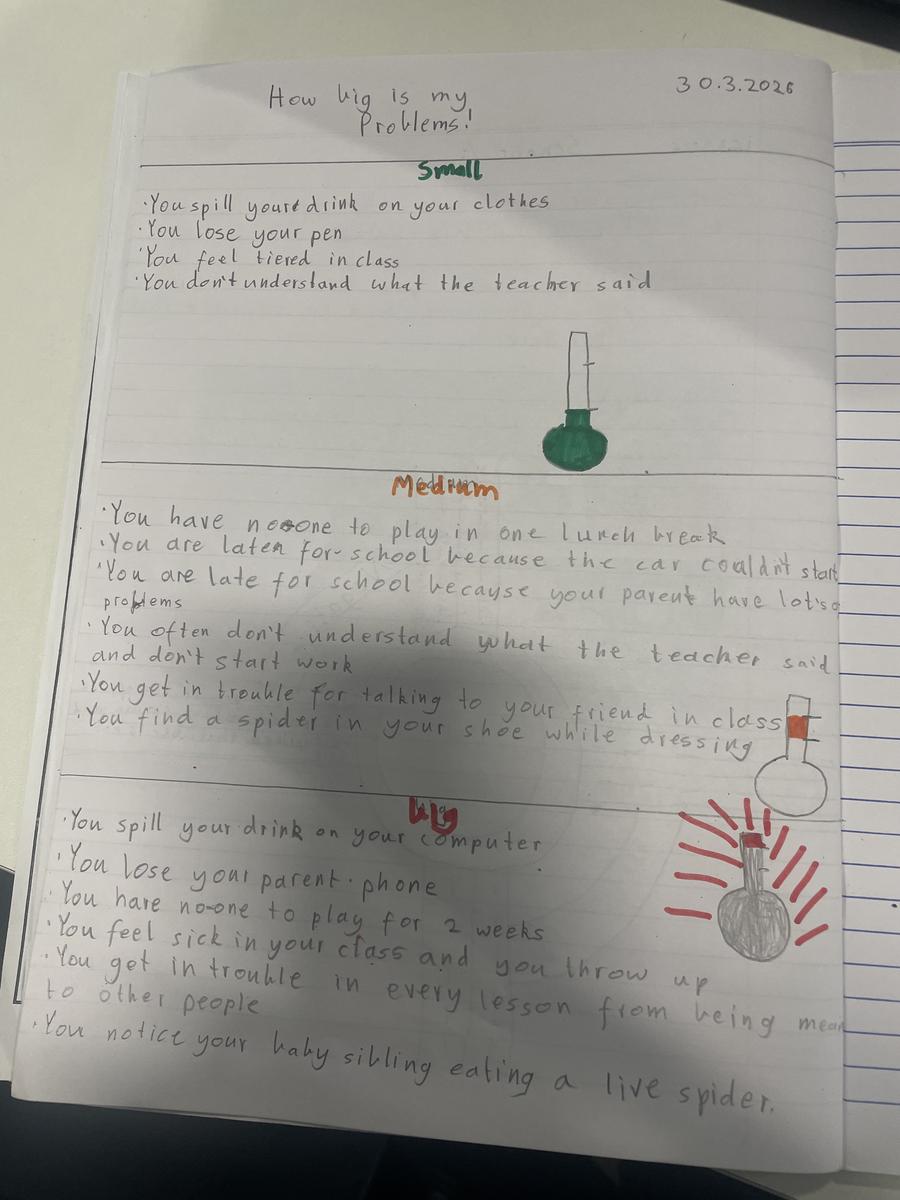 How big is my
Problems!
30.3.2026
Small
·You spill your drink on your clothes
·You lose your pen
·You feel tiered in class
·You don't understand what the teacher said
Medium
·You have no-one to play in one lunch break
·You are late for school because the car couldn't start
·You are late for school because your parent have lot's o
problems
·You often don't understand what the teacher said
and don't start work
·You get in trouble for talking to your friend in class
·You find a spider in your shoe while dressing
big
·You spill your drink on your computer
·You lose your parent phone
·You have no-one to play for 2 weeks
·You feel sick in your class and you throw up
·You get in trouble in every lesson from being mean
to other people
·You notice your baby sibling eating a live spider.